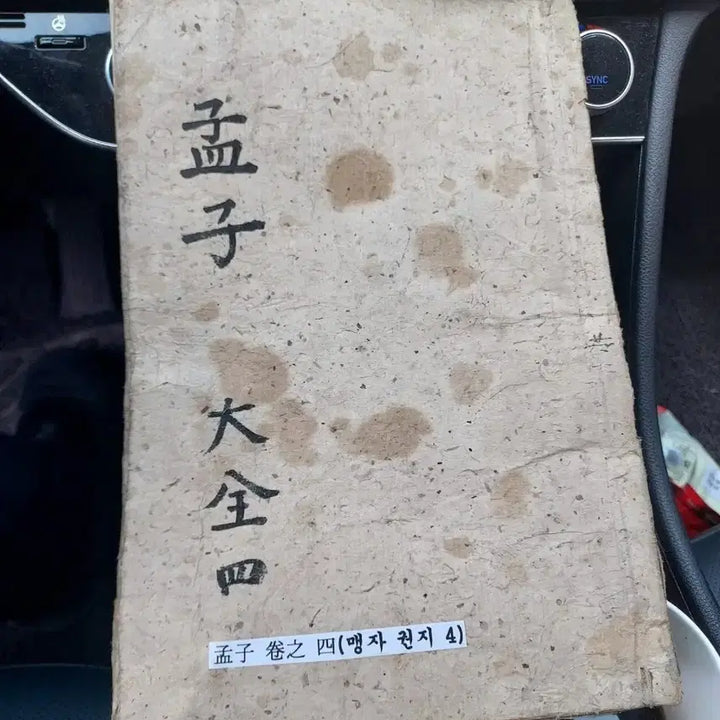 孟子
大全四
孟子 卷之 四(맹자 권지 4)
SYNC